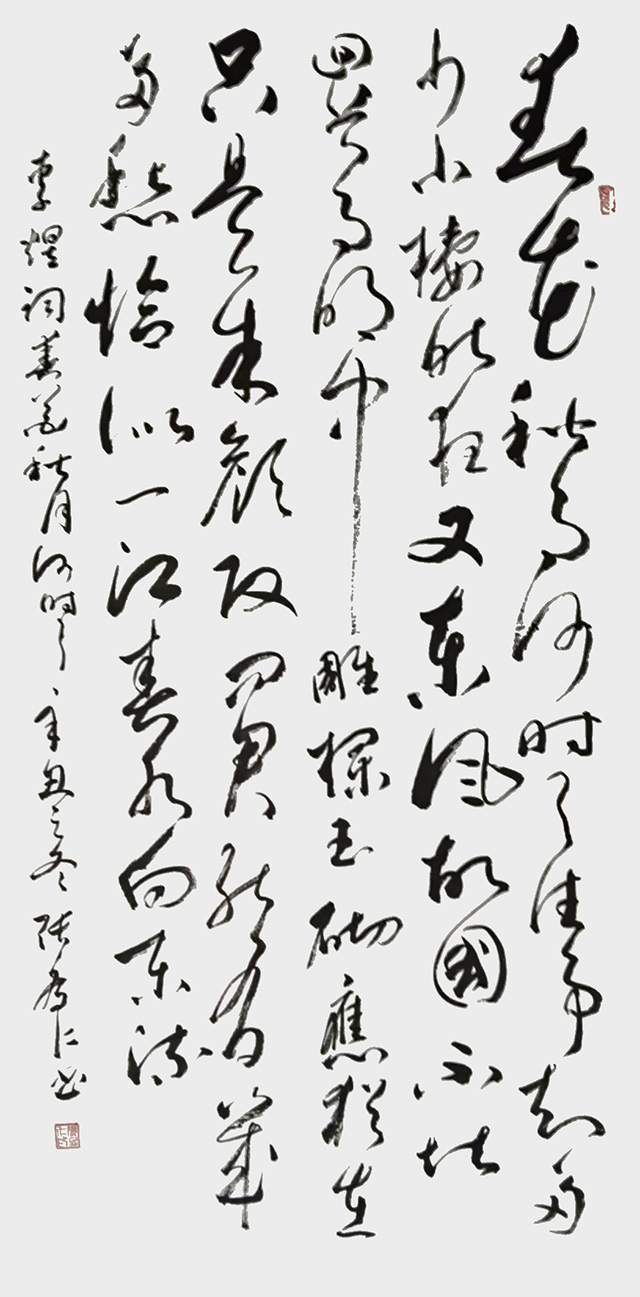 春花秋月何时了往事知多
少小楼昨夜又东风故國不堪
回首月明中雕栏玉砌應猶在
只是朱颜改问君能有幾
多愁恰似一江春水向东流
李煜词春花秋月何时了辛丑之冬仁书